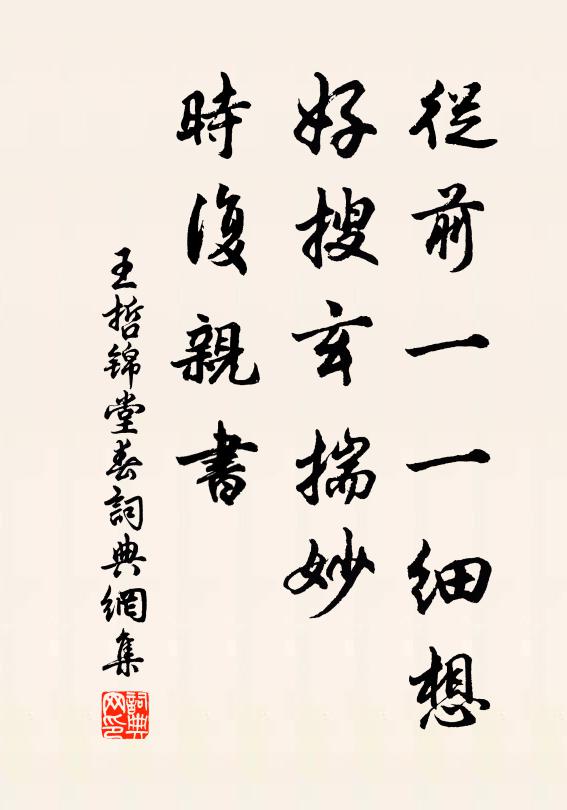 從前一一細想
好搜玄揣妙
時復親書
王哲錦堂春詞典網集
詞典網印